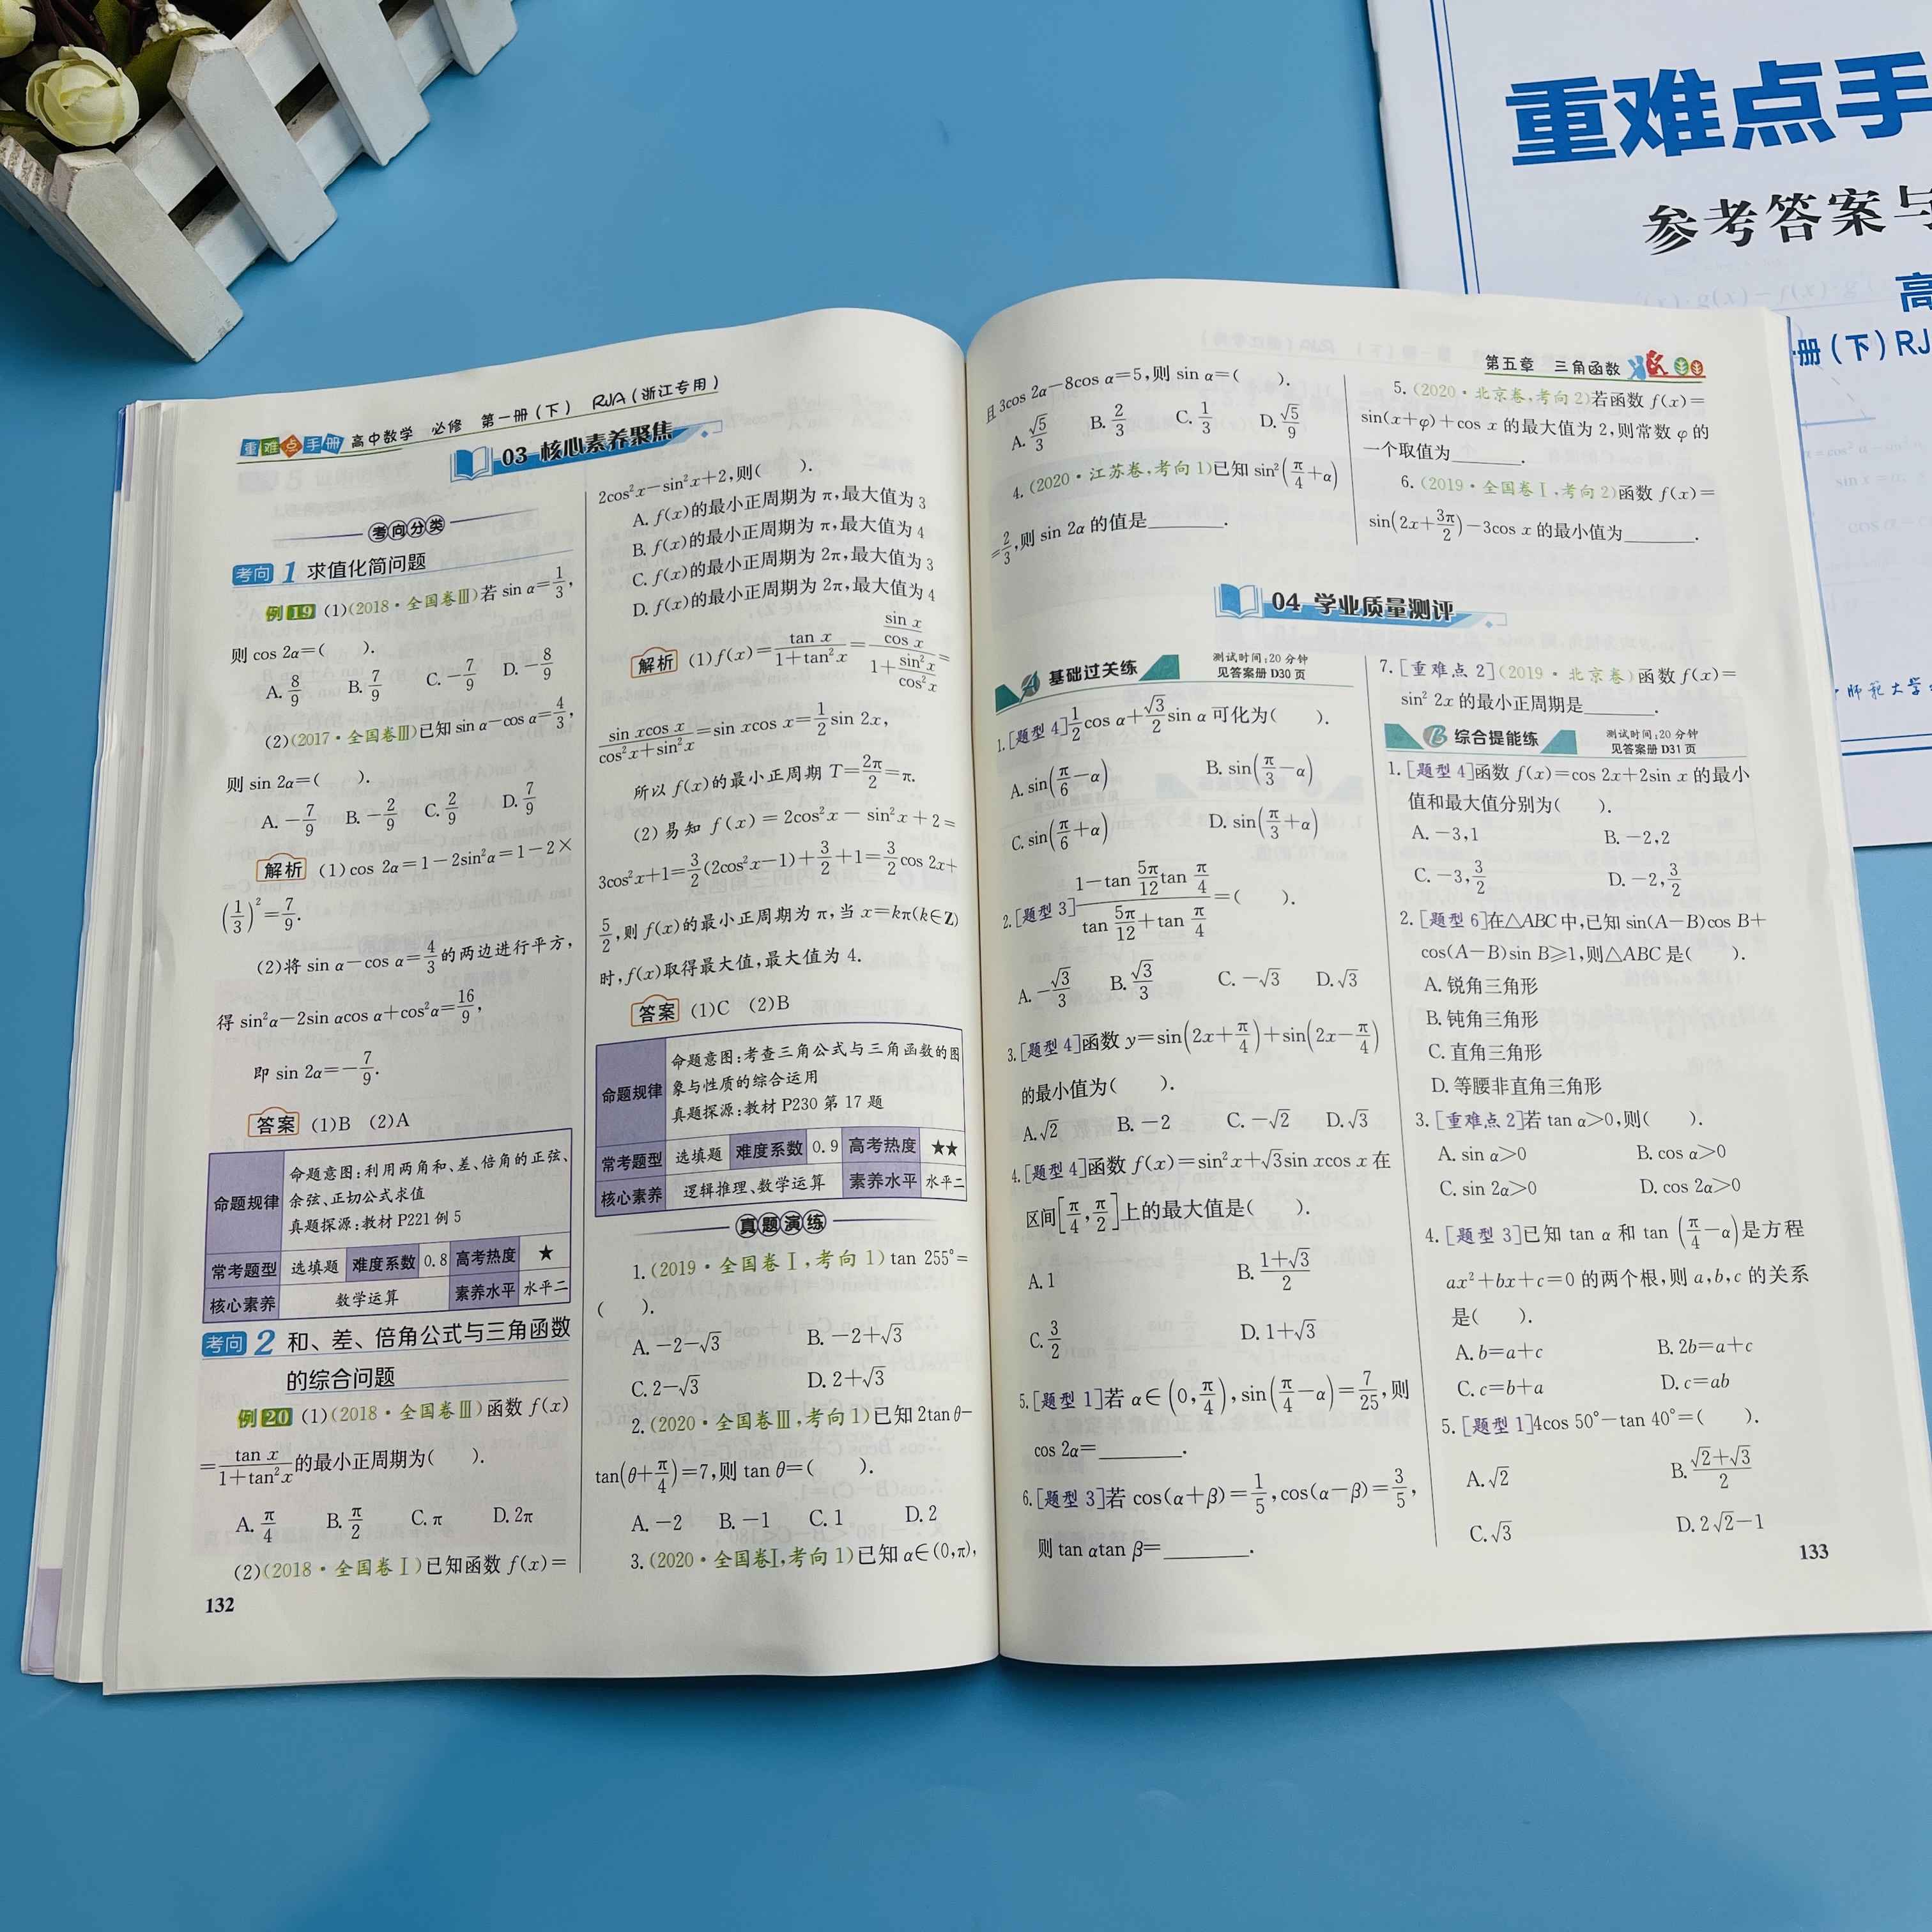 重难点手册 高中数学 必修 第一册(下) RJA(浙江专用)
03 核心素养聚焦
考向分类
考向1 求值化简问题
例19 (1)(2018·全国卷Ⅲ)若 sin α=1/3,
则 cos 2α=( ).
A. 8/9 B. 7/9 C. −7/9 D. −8/9
(2)(2017·全国卷Ⅲ)已知 sin α−cos α=4/3,
则 sin 2α=( ).
A. −7/9 B. −2/9 C. 2/9 D. 7/9
解析 (1)cos 2α=1−2sin²α=1−2×
(1/3)²=7/9.
(2)将 sin α−cos α=4/3的两边进行平方,
得 sin²α−2sin αcos α+cos²α=16/9,
即 sin 2α=−7/9.
答案 (1)B (2)A
命题规律
命题意图:利用两角和、差、倍角的正弦、
余弦、正切公式求值
真题探源:教材 P221 例 5
常考题型 选填题 难度系数 0.8 高考热度 ★
核心素养 数学运算 素养水平 水平二
考向2 和、差、倍角公式与三角函数
的综合问题
例20 (1)(2018·全国卷Ⅲ)函数 f(x)
=tan x/(1+tan²x)的最小正周期为( ).
A. π/4 B. π/2 C. π D. 2π
(2)(2018·全国卷Ⅰ)已知函数 f(x)=
132
2cos²x−sin²x+2,则( ).
A. f(x)的最小正周期为 π,最大值为 3
B. f(x)的最小正周期为 π,最大值为 4
C. f(x)的最小正周期为 2π,最大值为 3
D. f(x)的最小正周期为 2π,最大值为 4
解析 (1)f(x)=tan x/(1+tan²x)=(sin x/cos x)/(1+sin²x/cos²x)=
sin xcos x/(cos²x+sin²x)=sin xcos x=1/2 sin 2x,
所以 f(x)的最小正周期 T=2π/2=π.
(2)易知 f(x)=2cos²x−sin²x+2=
3cos²x+1=3/2(2cos²x−1)+3/2+1=3/2 cos 2x+
5/2,则 f(x)的最小正周期为 π,当 x=kπ(k∈Z)
时,f(x)取得最大值,最大值为 4.
答案 (1)C (2)B
命题规律
命题意图:考查三角公式与三角函数的图
象与性质的综合运用
真题探源:教材 P230 第 17 题
常考题型 选填题 难度系数 0.9 高考热度 ★★
核心素养 逻辑推理、数学运算 素养水平 水平二
真题演练
1.(2019·全国卷Ⅰ,考向 1)tan 255°=
( ).
A. −2−√3 B. −2+√3
C. 2−√3 D. 2+√3
2.(2020·全国卷Ⅲ,考向 1)已知 2tan θ−
tan(θ+π/4)=7,则 tan θ=( ).
A. −2 B. −1 C. 1 D. 2
3.(2020·全国卷Ⅰ,考向 1)已知 α∈(0,π),
第五章 三角函数
且 3cos 2α−8cos α=5,则 sin α=( ).
A. √5/3 B. 2/3 C. 1/3 D. √5/9
4.(2020·江苏卷,考向 1)已知 sin²(π/4+α)
=2/3,则 sin 2α 的值是________.
5.(2020·北京卷,考向 2)若函数 f(x)=
sin(x+φ)+cos x 的最大值为 2,则常数 φ 的
一个取值为________.
6.(2019·全国卷Ⅰ,考向 2)函数 f(x)=
sin(2x+3π/2)−3cos x 的最小值为________.
04 学业质量测评
A 基础过关练
测试时间:20 分钟
见答案册 D30 页
1.[题型 4]1/2 cos α+√3/2 sin α 可化为( ).
A. sin(π/6−α) B. sin(π/3−α)
C. sin(π/6+α) D. sin(π/3+α)
2.[题型 3](1−tan 5π/12 tan π/4)/(tan 5π/12+tan π/4)=( ).
A. −√3/3 B. √3/3 C. −√3 D. √3
3.[题型 4]函数 y=sin(2x+π/4)+sin(2x−π/4)
的最小值为( ).
A. √2 B. −2 C. −√2 D. √3
4.[题型 4]函数 f(x)=sin²x+√3sin xcos x 在
区间[π/4,π/2]上的最大值是( ).
A. 1 B. (1+√3)/2
C. 3/2 D. 1+√3
5.[题型 1]若 α∈(0,π/4),sin(π/4−α)=7/25,则
cos 2α=________.
6.[题型 3]若 cos(α+β)=1/5,cos(α−β)=3/5,
则 tan αtan β=________.
7.[重难点 2](2019·北京卷)函数 f(x)=
sin² 2x 的最小正周期是________.
B 综合提能练
测试时间:20 分钟
见答案册 D31 页
1.[题型 4]函数 f(x)=cos 2x+2sin x 的最小
值和最大值分别为( ).
A. −3,1 B. −2,2
C. −3,3/2 D. −2,3/2
2.[题型 6]在△ABC 中,已知 sin(A−B)cos B+
cos(A−B)sin B≥1,则△ABC 是( ).
A. 锐角三角形
B. 钝角三角形
C. 直角三角形
D. 等腰非直角三角形
3.[重难点 2]若 tan α>0,则( ).
A. sin α>0 B. cos α>0
C. sin 2α>0 D. cos 2α>0
4.[题型 3]已知 tan α 和 tan (π/4−α)是方程
ax²+bx+c=0 的两个根,则 a,b,c 的关系
是( ).
A. b=a+c B. 2b=a+c
C. c=b+a D. c=ab
5.[题型 1]4cos 50°−tan 40°=( ).
A. √2 B. (√2+√3)/2
C. √3 D. 2√2−1
133
重难点手
参考答案与
高
册(下)RJ
师范大学